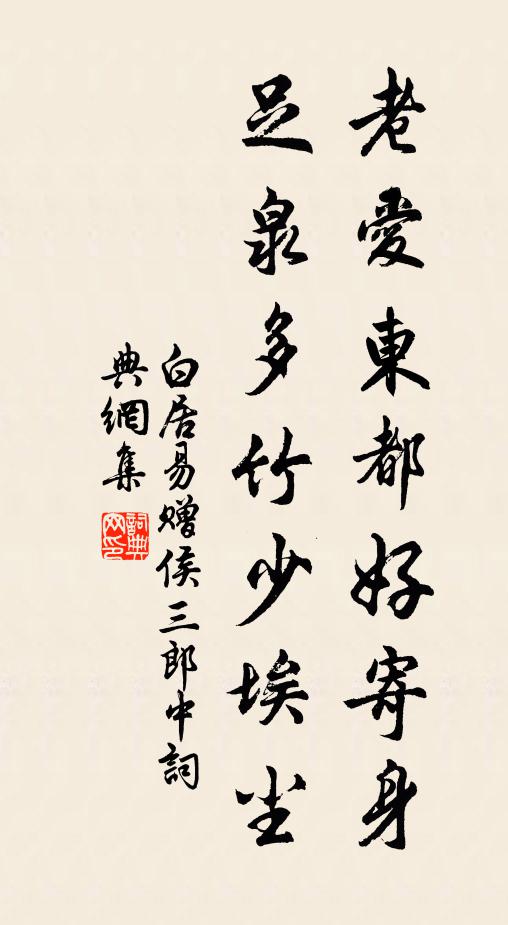 老愛東都好寄身
足泉多竹少埃尘
白居易赠侯三郎中詞
典網集
詞典
网印